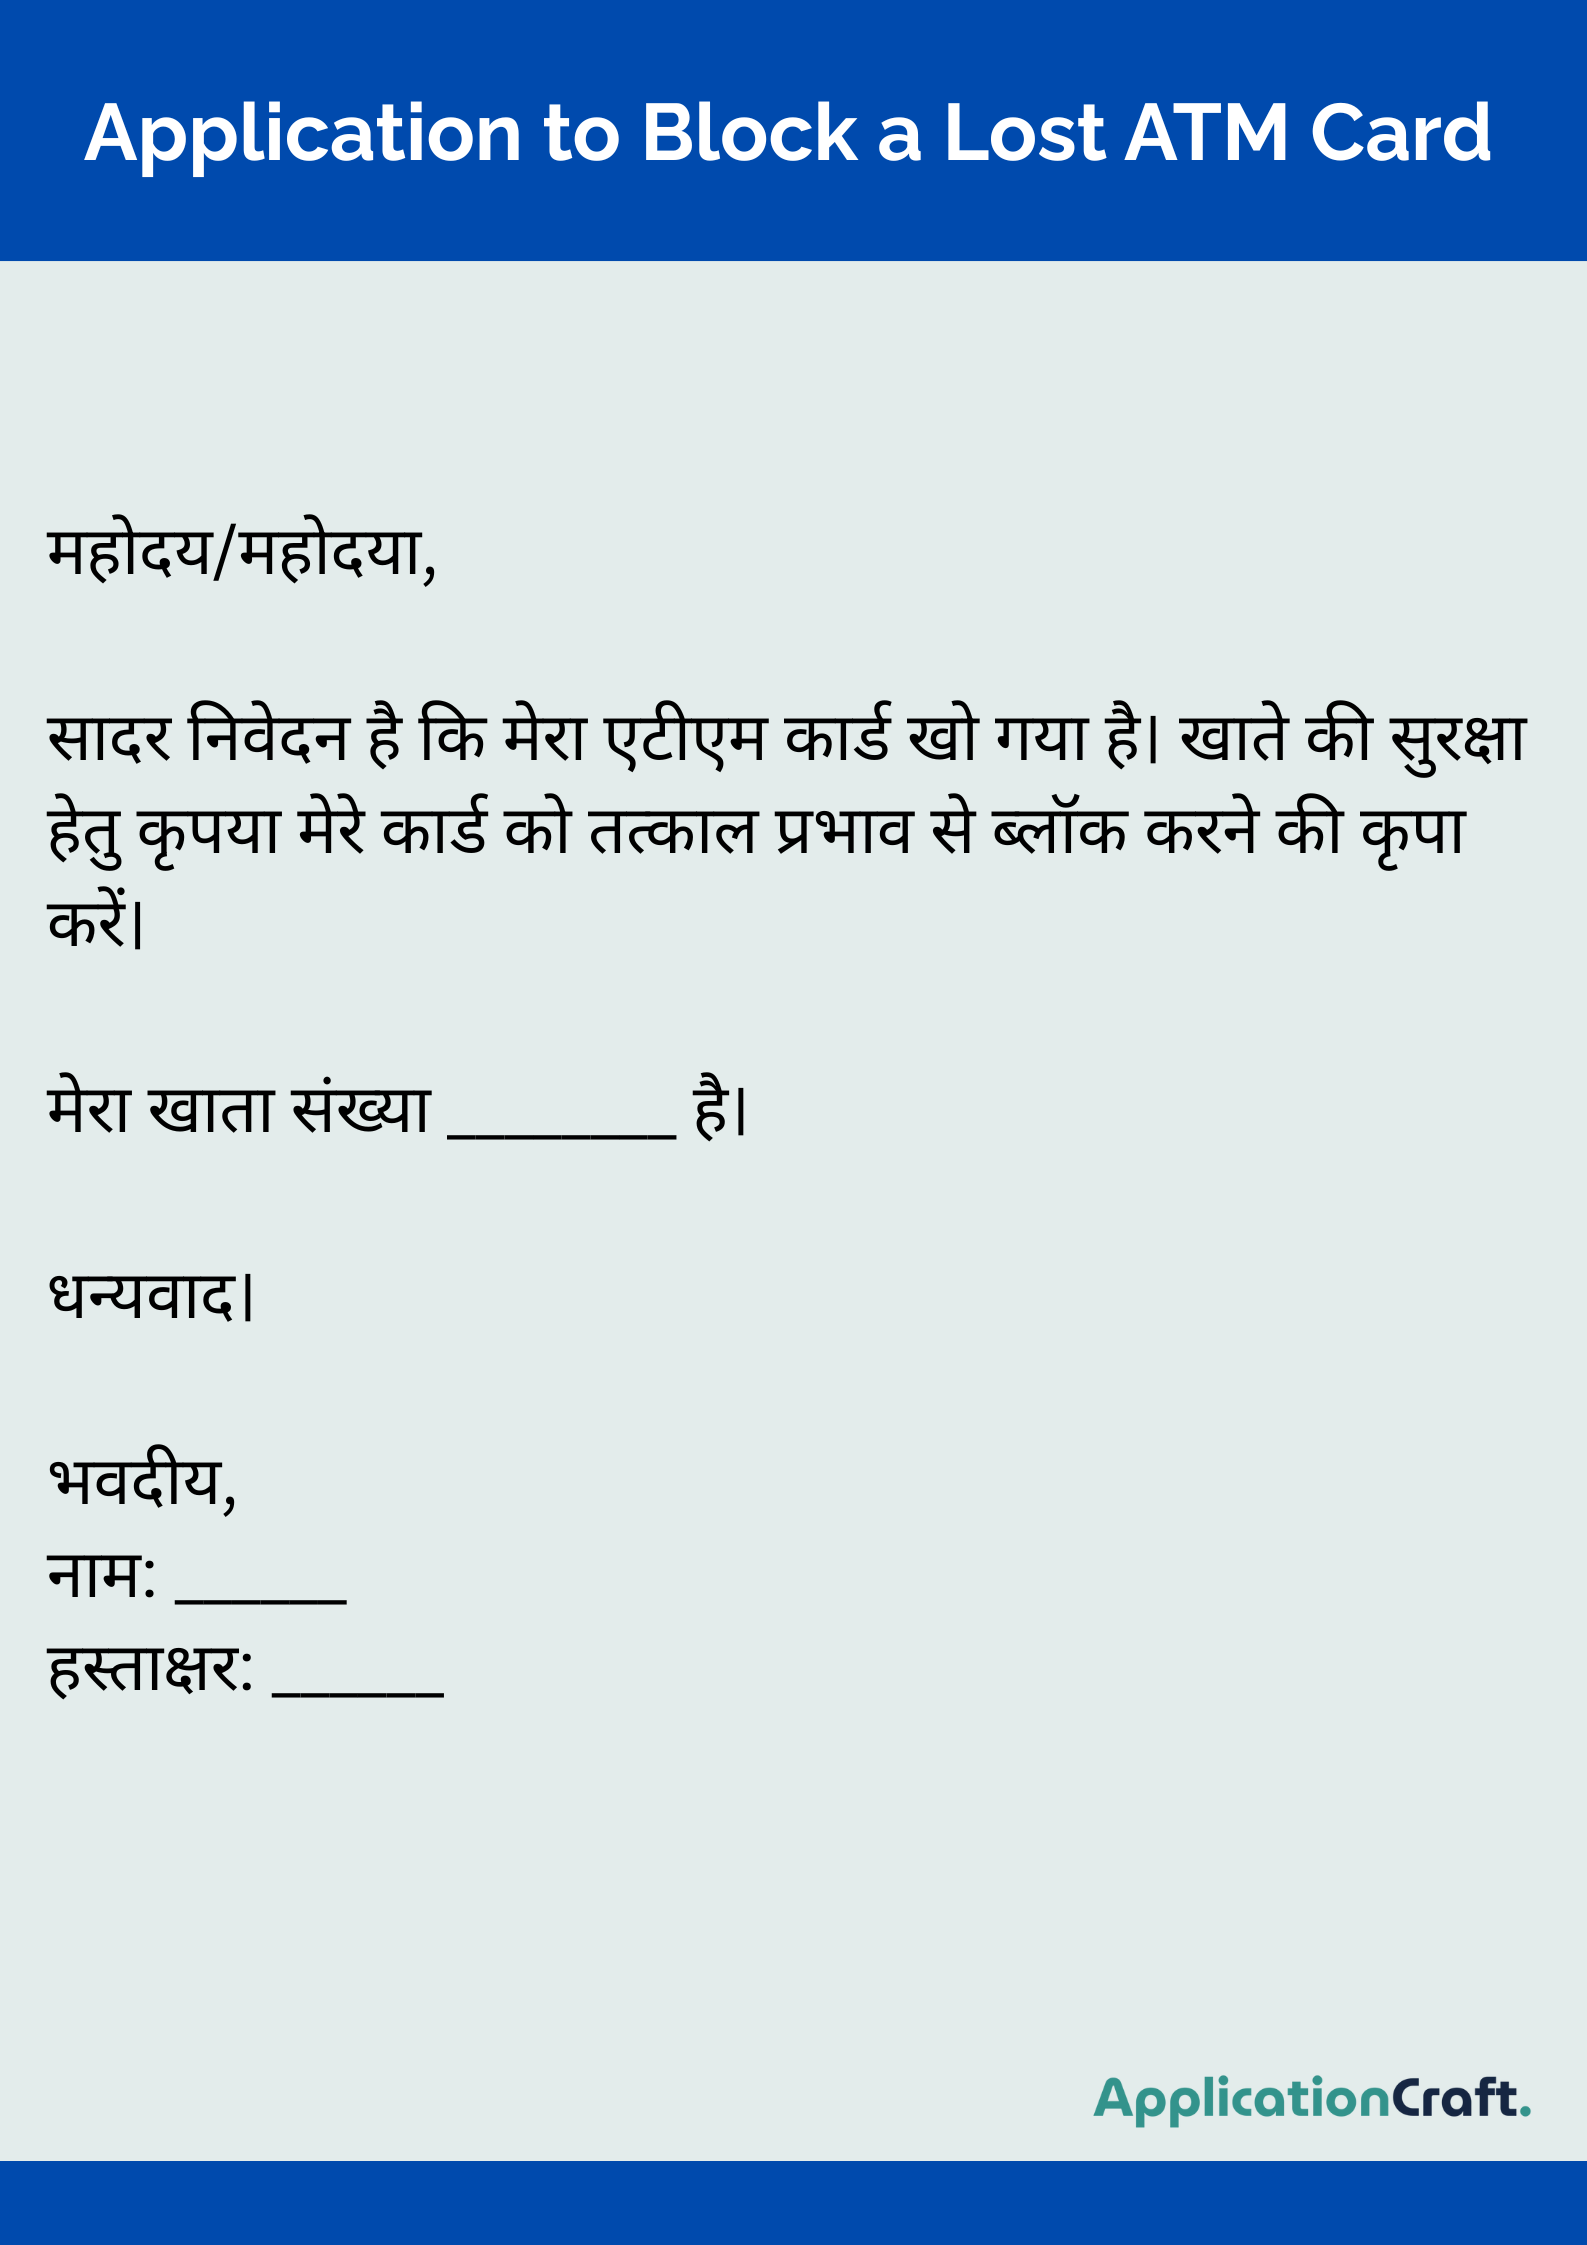 Application to Block a Lost ATM Card
महोदय/महोदया,
सादर निवेदन है कि मेरा एटीएम कार्ड खो गया है। खाते की सुरक्षा
हेतु कृपया मेरे कार्ड को तत्काल प्रभाव से ब्लॉक करने की कृपा
करें।
मेरा खाता संख्या ________ है।
धन्यवाद।
भवदीय,
नाम: ______
हस्ताक्षर: ______
ApplicationCraft.